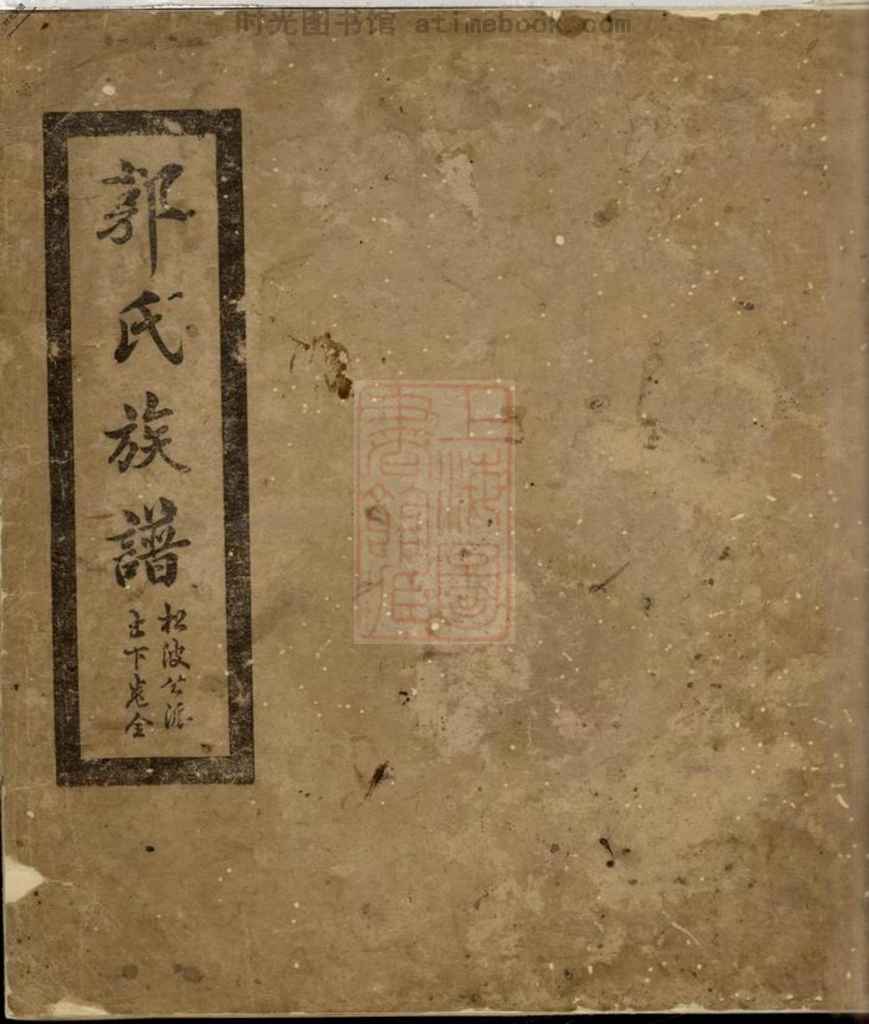 时光图书馆 atimebook.com
郭氏族譜
松波公派
上下卷全
上海圖
書館藏